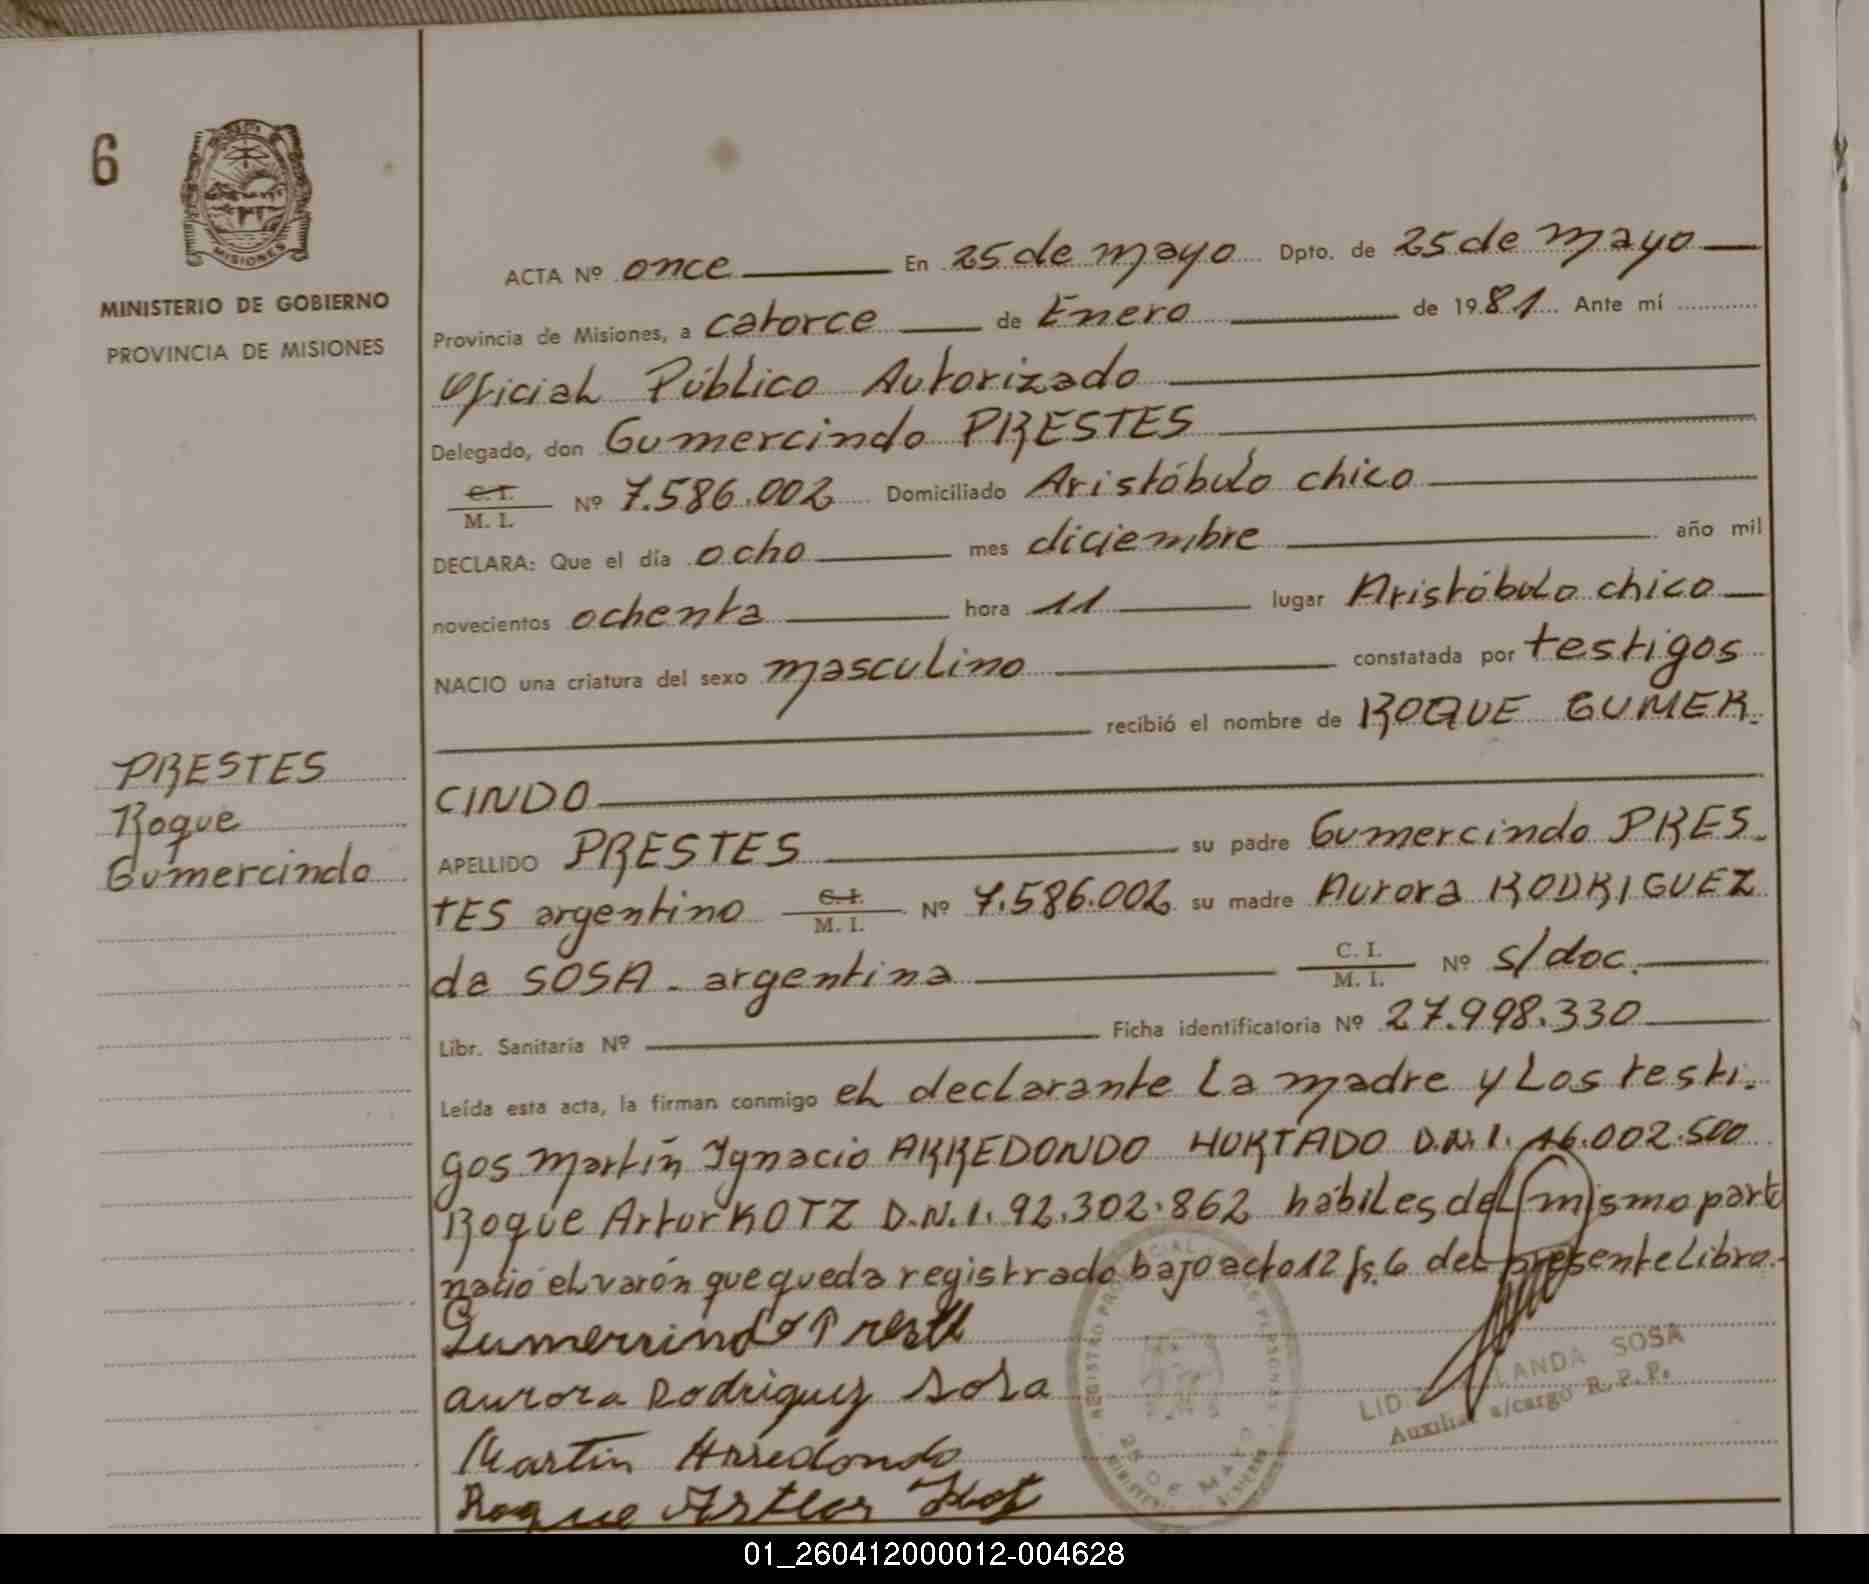 6
MISIONES
MINISTERIO DE GOBIERNO
PROVINCIA DE MISIONES
PRESTES
Roque
Gumercindo
ACTA Nº once En 25 de mayo Dpto. de 25 de mayo
Provincia de Misiones, a catorce de Enero de 1981 Ante mí
Oficial Público Autorizado
Delegado, don Gumercindo PRESTES
C.I. / M. I. Nº 7.586.002 Domiciliado Aristóbulo chico
DECLARA: Que el día ocho mes diciembre año mil
novecientos ochenta hora 11 lugar Aristóbulo chico
NACIO una criatura del sexo masculino constatada por testigos
recibió el nombre de ROQUE GUMER-
CINDO
APELLIDO PRESTES su padre Gumercindo PRES-
TES argentino C.I. / M. I. Nº 7.586.002 su madre Aurora RODRIGUEZ
da SOSA - argentina C. I. / M. I. Nº s/doc.
Libr. Sanitaria Nº Ficha identificatoria Nº 27.998.330
Leída esta acta, la firman conmigo el declarante la madre y los testi-
gos Martín Ignacio ARREDONDO HURTADO D.N.I. 16.002.500
Roque Artur KOTZ D.N.I. 92.302.862 hábiles del mismo parto
nació el varón que queda registrado bajo acto 12 fs. 6 del presente libro.-
Gumercindo Preste
Aurora Rodriguez Sosa
Martin Arredondo
Roque Artur
REGISTRO PROVINCIAL PERSONAS
25 DE MAYO
LID LANDA SOSA
Auxiliar a/cargo R.P.P.
01_260412000012-004628